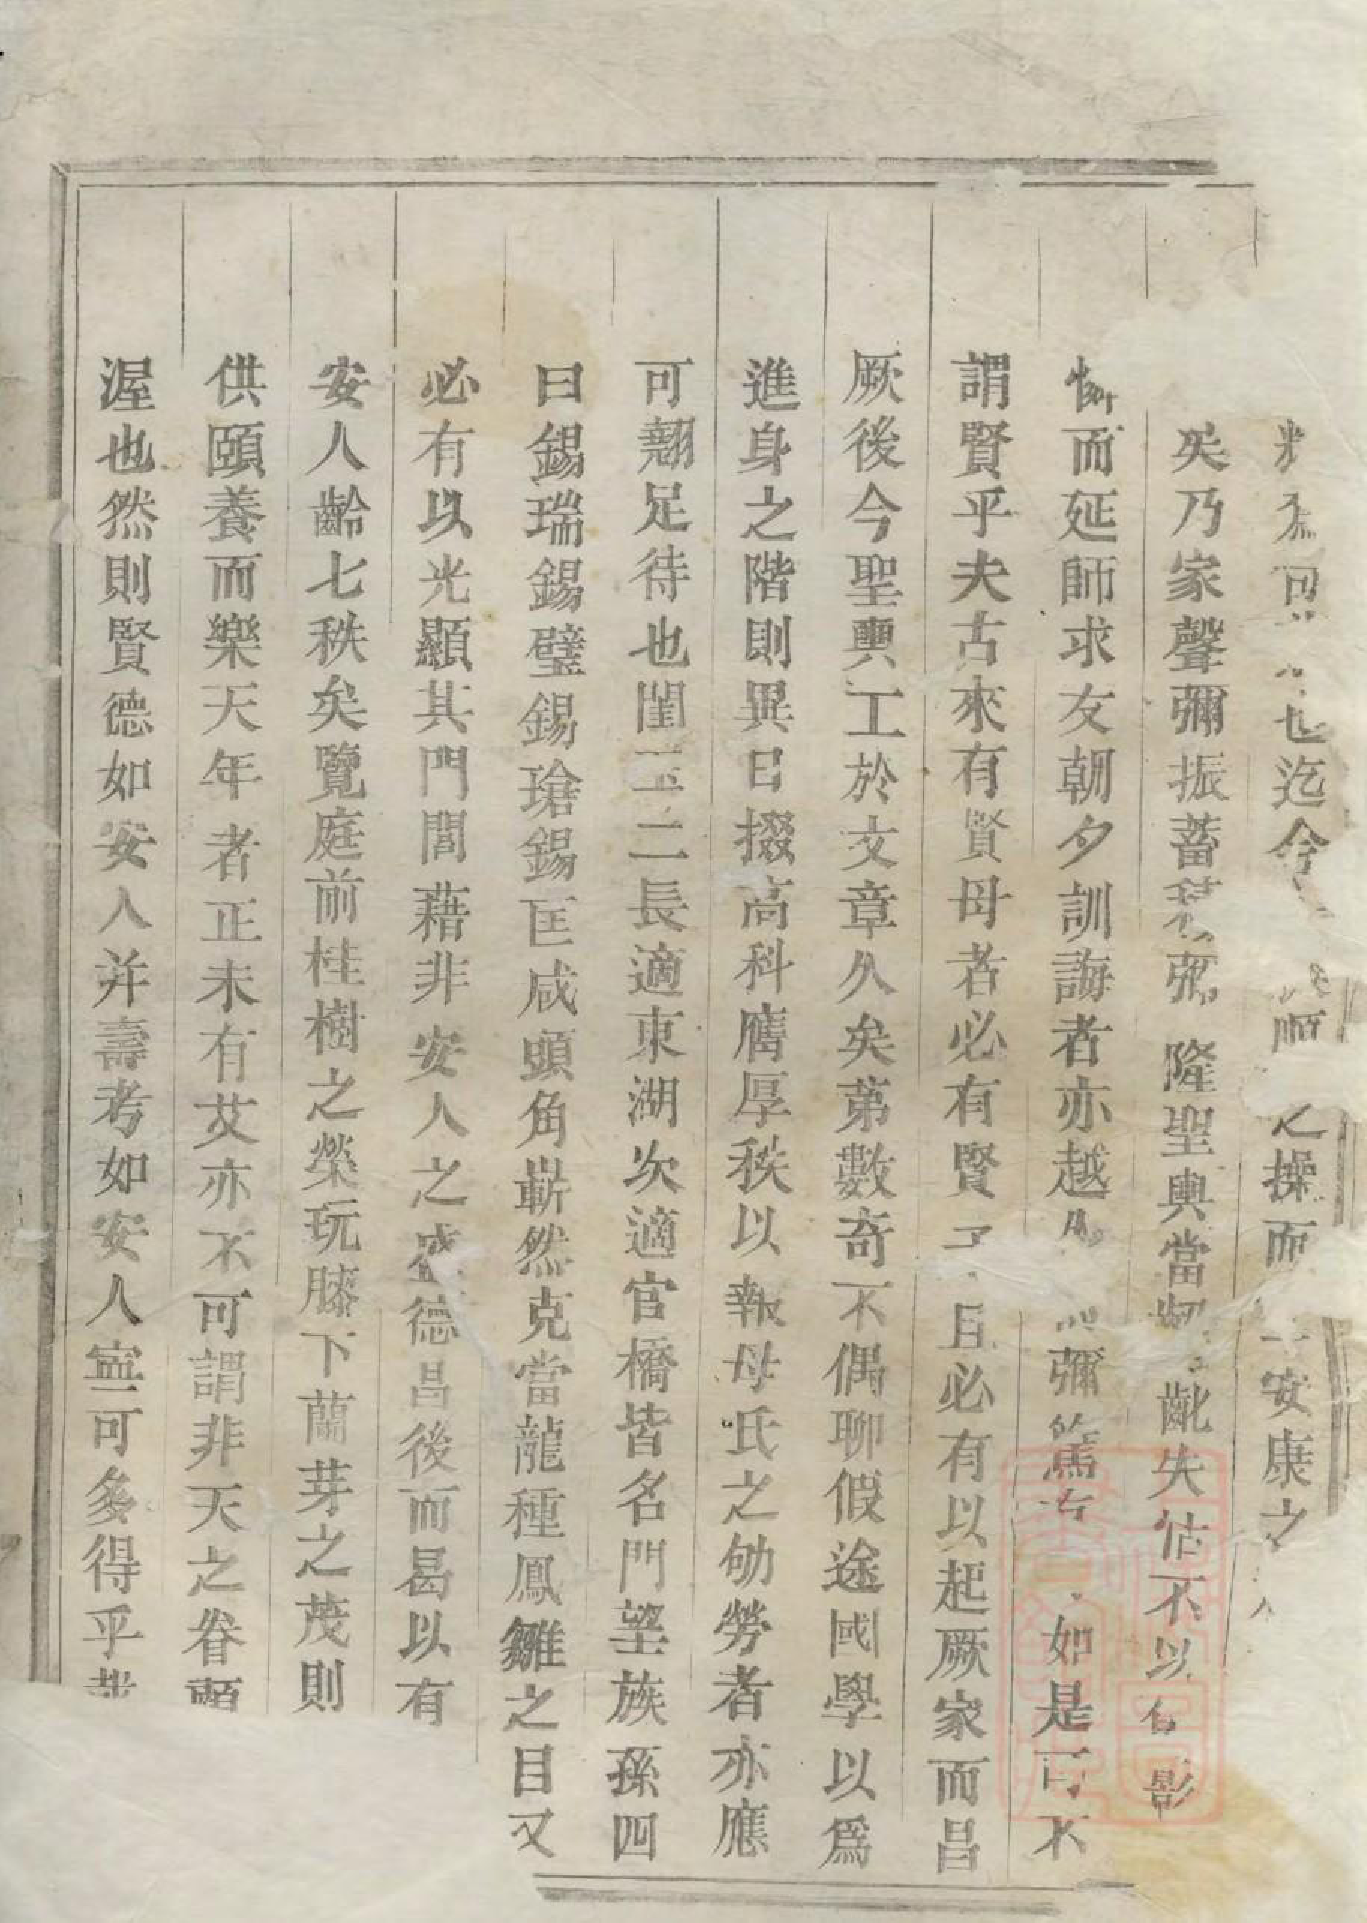 也迄今順之操而安康之
矣乃家聲彌振蓄積彌隆聖輿當齠齔失怙不以
而延師求友朝夕訓誨者亦越彌篤如是可不
謂賢乎夫古來有賢母者必有賢子且必有以起厥家而昌
厥後今聖輿工於文章久矣苐數奇不偶聊假途國學以爲
進身之階則異日掇高科膺厚秩以報母氏之劬勞者亦應
可翹足待也閨玉二長適東湖次適官橋皆名門望族孫四
曰錫瑞錫璧錫瑲錫匡咸頭角嶄然克當龍種鳳雛之目又
必有以光顯其門閭藉非安人之盛德昌後而曷以有
安人齡七秩矣覽庭前桂樹之榮玩膝下蘭芽之茂則
供頤養而樂天年者正未有艾亦不可謂非天之眷顧
渥也然則賢德如安人并壽考如安人寧可多得乎